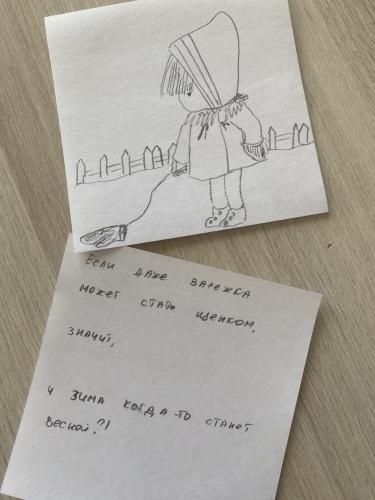 ЕСЛИ ДАЖЕ ВАРЕЖКА
МОЖЕТ СТАТЬ ЩЕНКОМ,
ЗНАЧИТ,
И ЗИМА КОГДА-ТО СТАНЕТ
ВЕСНОЙ?!